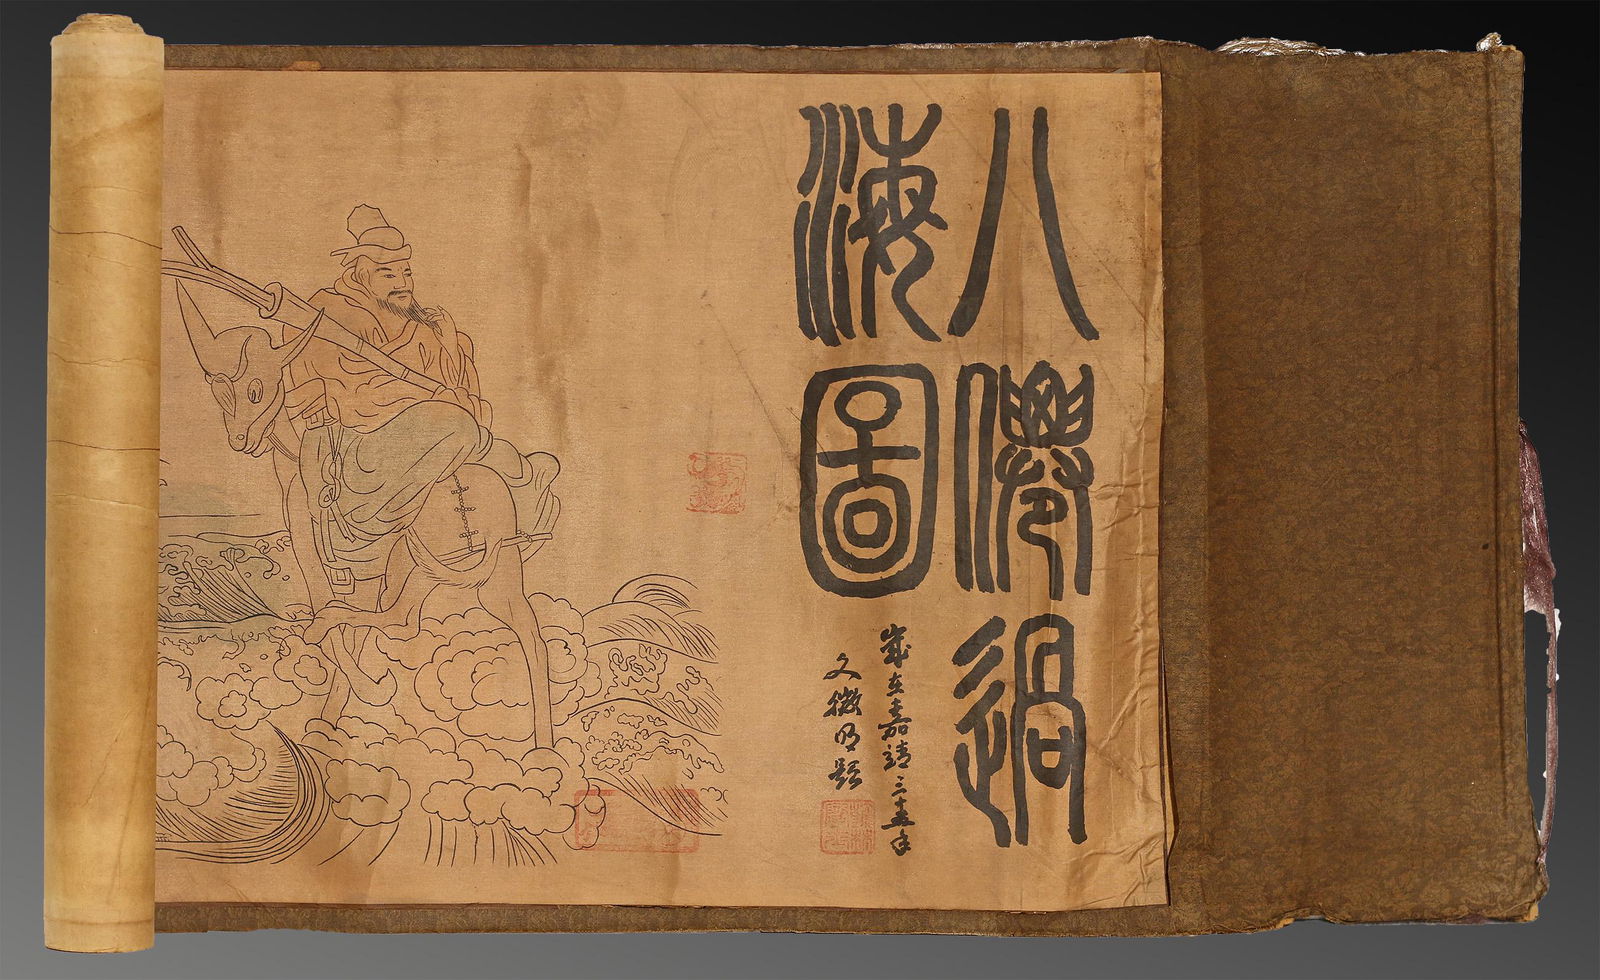 八僊過
海圖
歲在嘉靖三十五年
文徵明題